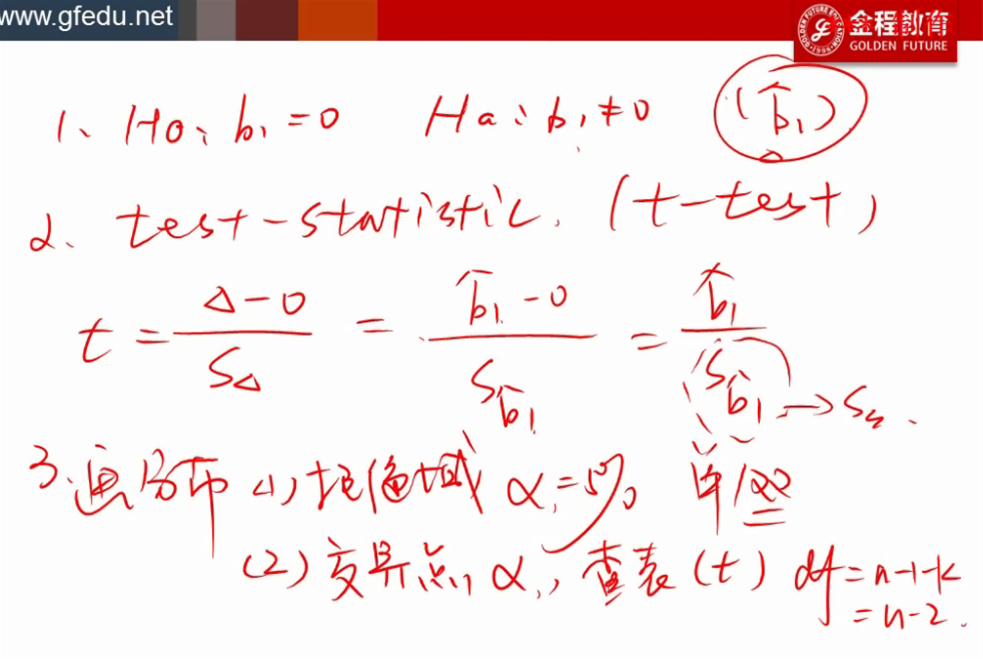 www.gfedu.net
金程教育
GOLDEN FUTURE
1、H0: b₁=0 Ha: b₁≠0 (b̂₁)
2、test-statistic. (t-test)
t = (Δ-0)/S_Δ = (b̂₁-0)/S_b̂₁ = b̂₁/S_b̂₁ →
3、画分布 (1)拒绝域 α=5% 单/双
(2)交界点, α, 查表(t) df=n-1-k
=n-2.